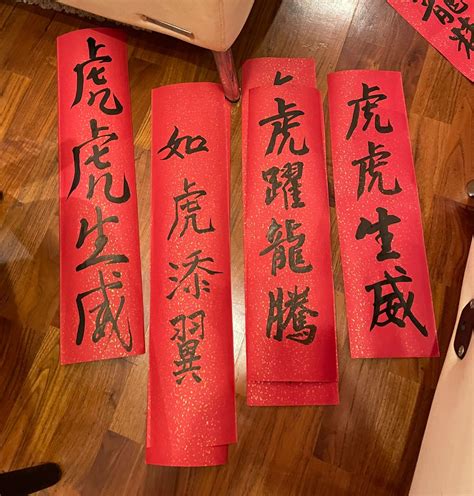 虎虎生威
如虎添翼
虎躍龍騰
虎虎生威